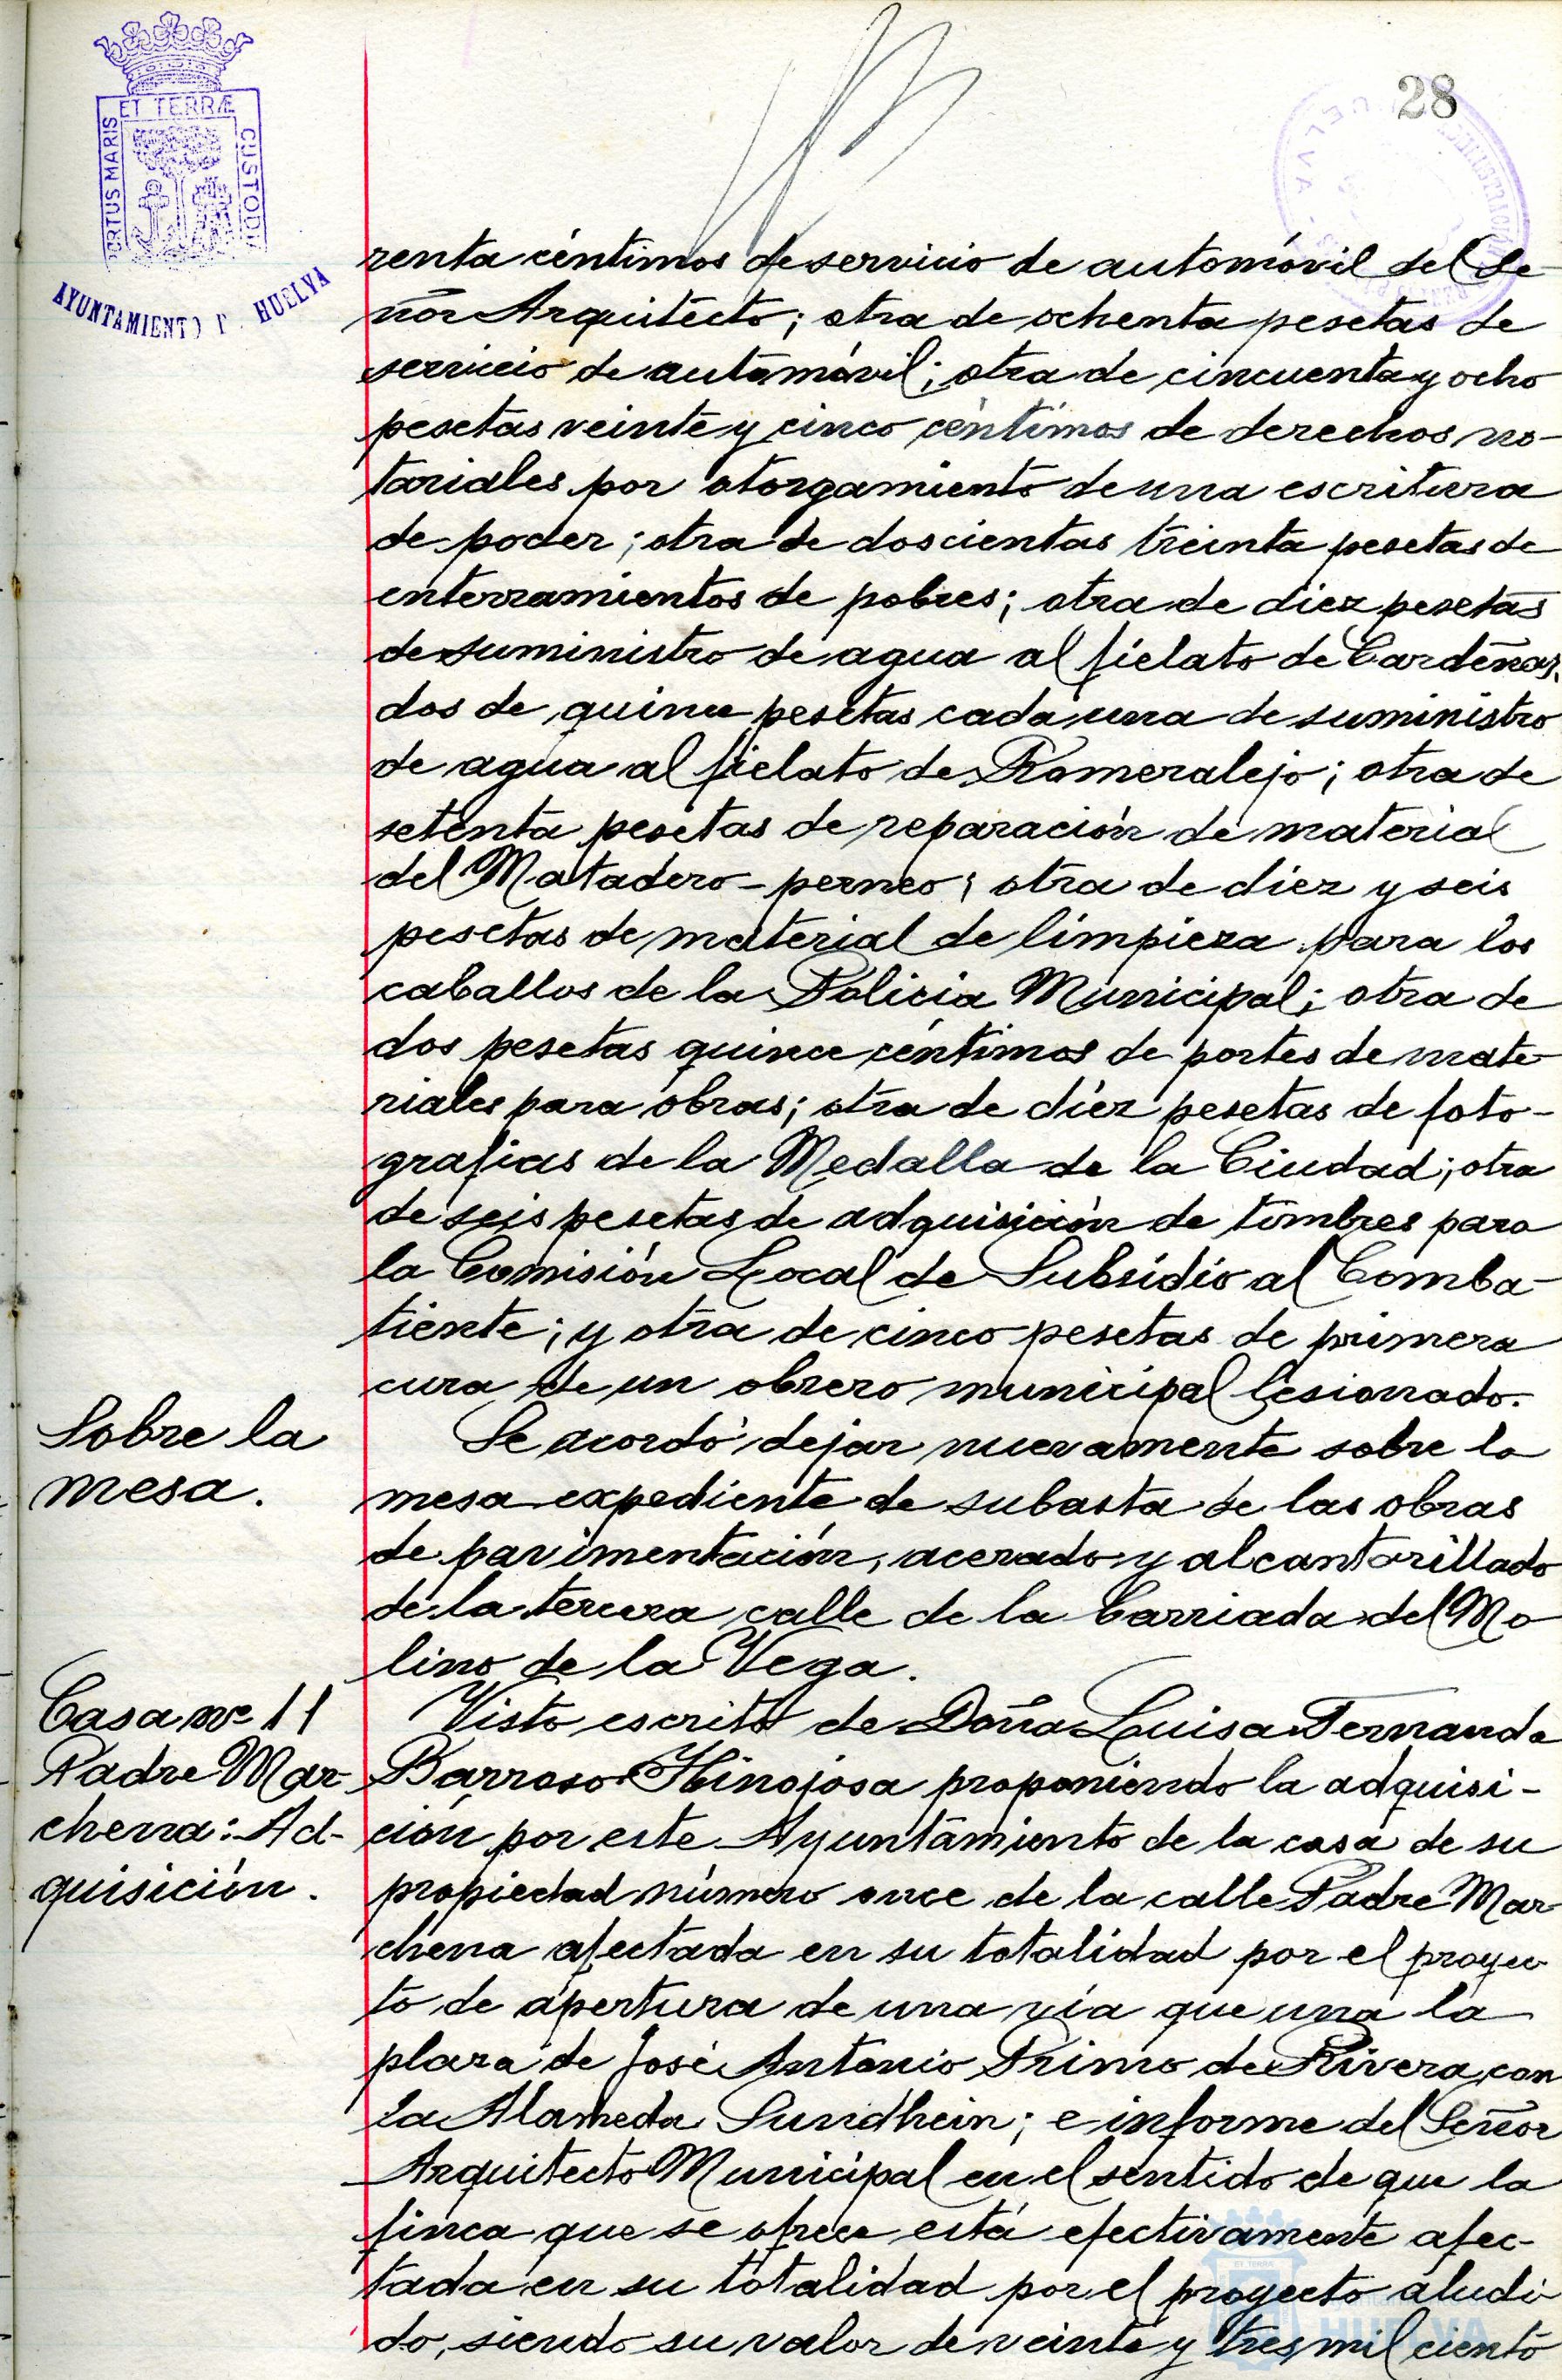 28
PORTUS MARIS ET TERRÆ CUSTODIA
AYUNTAMIENTO D. HUELVA
renta céntimos de servicio de automóvil del Se-
ñor Arquitecto; otra de ochenta pesetas de
servicio de automóvil; otra de cincuenta y ocho
pesetas veinte y cinco céntimos de derechos no-
tariales por otorgamiento de una escritura
de poder; otra de doscientas treinta pesetas de
enterramientos de pobres; otra de diez pesetas
de suministro de agua al fielato de Cardeñas,
dos de quince pesetas cada una de suministro
de agua al fielato de Romeralejo; otra de
setenta pesetas de reparación de material
del Matadero-perneo; otra de diez y seis
pesetas de material de limpieza para los
caballos de la Policia Municipal; otra de
dos pesetas quince céntimos de portes de mate-
riales para obras; otra de diez pesetas de foto-
grafias de la Medalla de la Ciudad; otra
de seis pesetas de adquisición de timbres para
la Comisión Local de Subsidio al Comba-
tiente; y otra de cinco pesetas de primera
cura de un obrero municipal lesionado.
Sobre la
mesa.
Se acordó dejar nuevamente sobre la
mesa expediente de subasta de las obras
de pavimentación, acerado y alcantarillado
de la tercera calle de la barriada del Mo
lino de la Vega.
Casa nº 11
Padre Mar-
chena: Ad-
quisición.
Visto escrito de Doña Luisa Fernanda
Barroso Hinojosa proponiendo la adquisi-
ción por este Ayuntamiento de la casa de su
propiedad número once de la calle Padre Mar
chena afectada en su totalidad por el proyec
to de apertura de una vía que una la
plaza de José Antonio Primo de Rivera con
la Alameda Sundhein; e informe del Señor
Arquitecto Municipal en el sentido de que la
finca que se ofrece está efectivamente afec-
tada en su totalidad por el proyecto aludi
do, siendo su valor de veinte y tres mil ciento
HUELVA